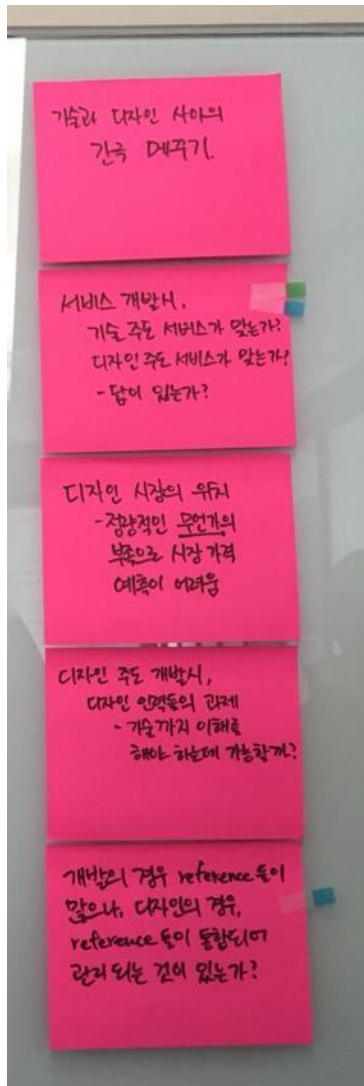 기술과 디자인 사이의
간극 메꾸기.
서비스 개발시,
기술 주도 서비스가 맞는가?
디자인 주도 서비스가 맞는가?
- 답이 있는가?
디자인 시장의 위치
- 정량적인 무언가의
부족으로 시장 가격
예측이 어려움
디자인 주도 개발시,
디자인 인력들의 과제
- 기술까지 이해를
해야 하는데 가능할까?
개발의 경우 reference 들이
많으나, 디자인의 경우,
reference 들이 통합되어
관리 되는 것이 있는가?